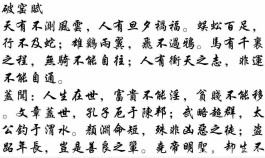 破窑赋
天有不测風雲，人有旦夕禍福。蜈蚣百足，
行不及蛇；雄鷄兩翼，飛不過鴉。馬有千裏
之程，無騎不能自往；人有衝天之志，非運
不能自通。
蓋聞：人生在世，富貴不能淫，貧賤不能移
。文章蓋世，孔子厄于陳邦；武略超群，太
公釣于渭水。顔淵命短，殊非凶惡之徒；盗
跖年長，豈是善良之輩。堯帝明聖，却生不